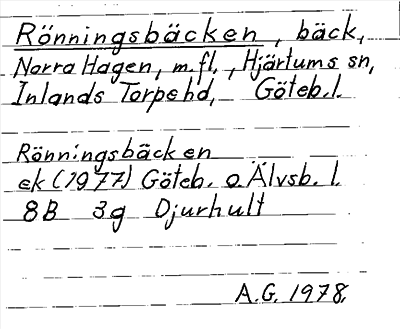 Rönningsbäcken, bäck,
Norra Hagen, m.fl., Hjärtums sn,
Inlands Torpe hd, Göteb.l.
Rönningsbäcken
ek (1977) Göteb. o Älvsb. l.
8B 3g Djurhult
A.G. 1978.